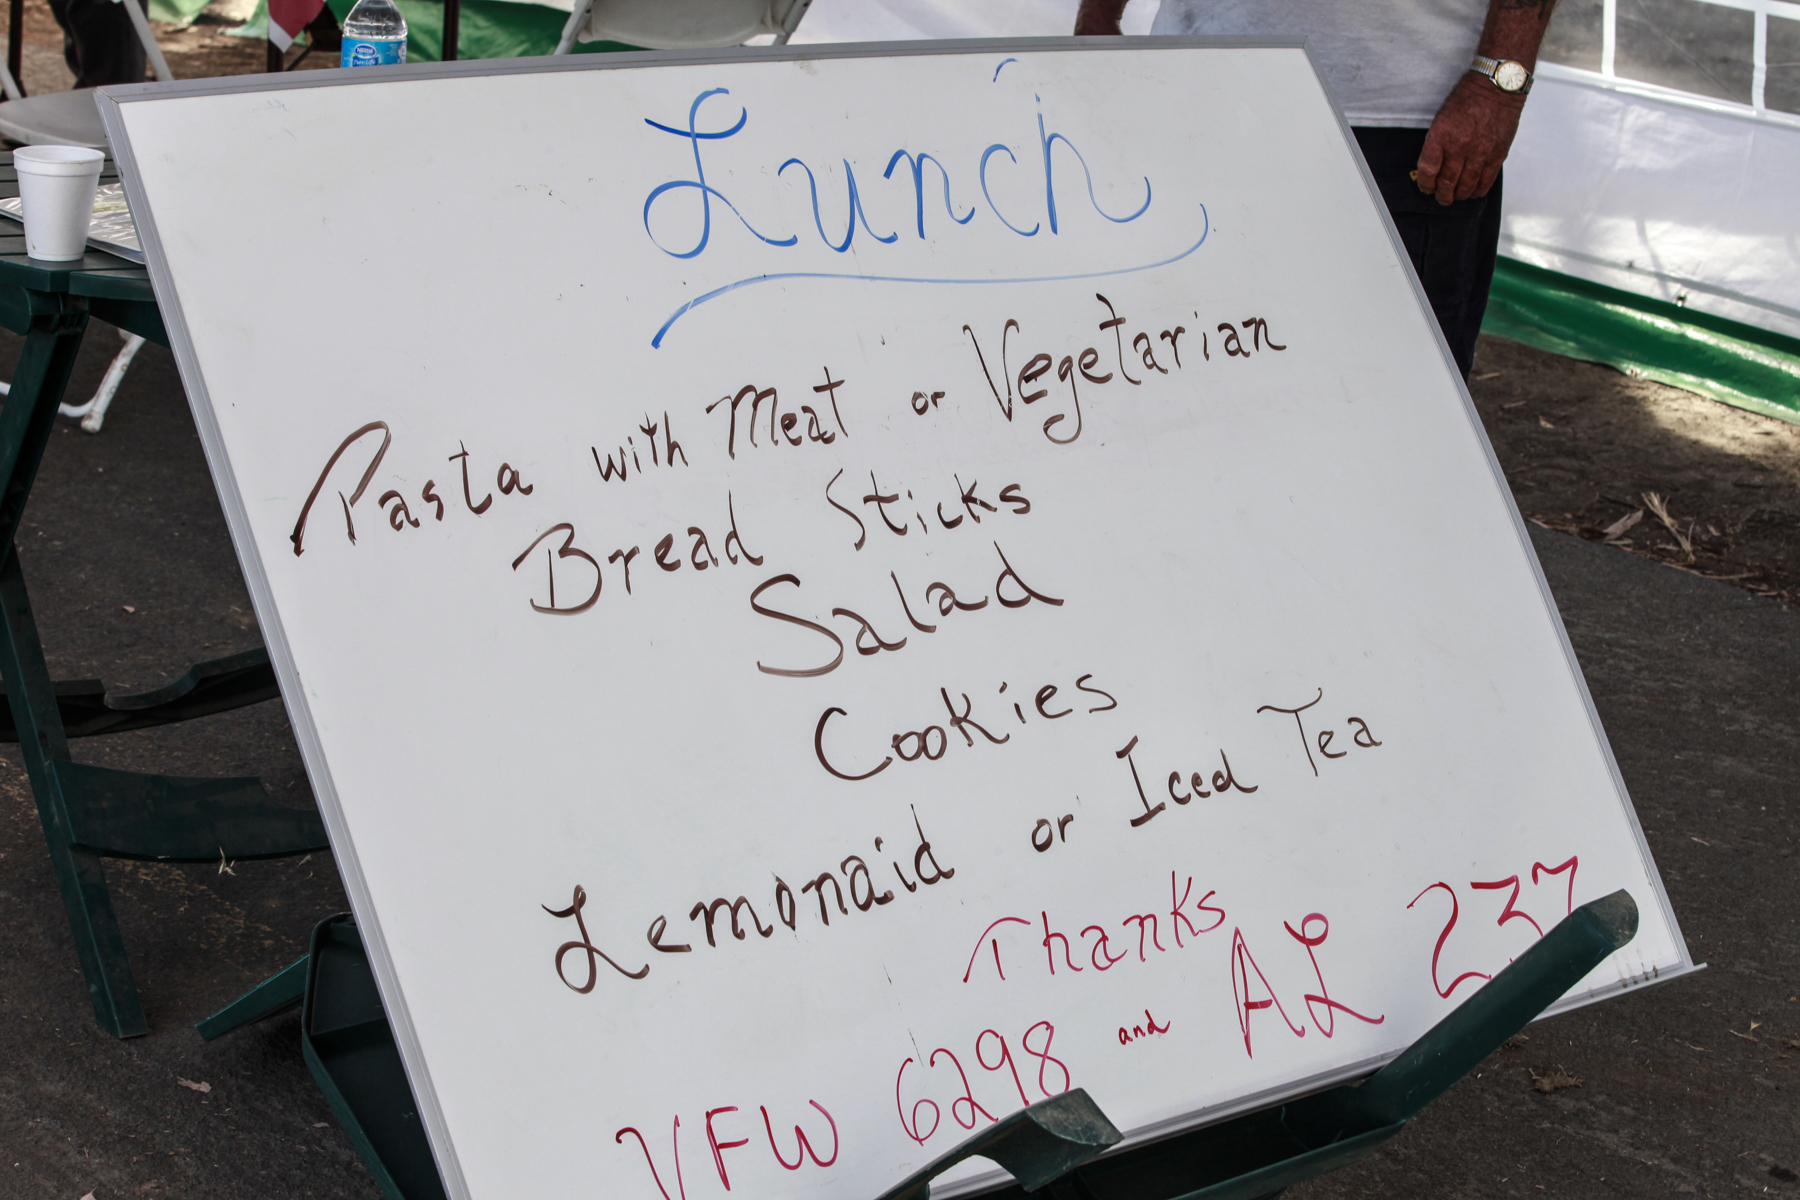 Nestle
Pure Life
Lunch
Pasta with Meat or Vegetarian
Bread Sticks
Salad
Cookies
Lemonaid or Iced Tea
Thanks
VFW 6298 and AL 237